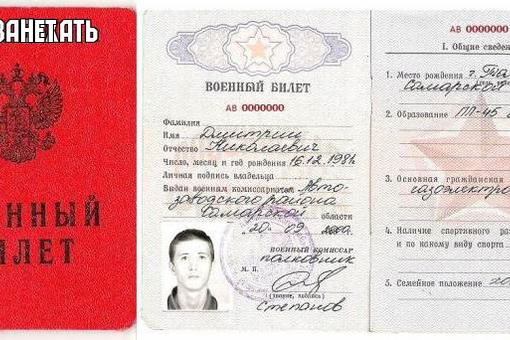 ЗАНЕКАТЬ
ЕННЫЙ
ИЛЕТ
ВОЕННЫЙ БИЛЕТ
АВ 0000000
Фамилия
Имя Дмитрий
Отчество Николаевич
Число, месяц и год рождения 16.12.198
Личная подпись владельца
Выдан военным комиссариатом Авто-
заводского района
Самарской области
20 09
ВОЕННЫЙ КОМИССАР
полковник
М. П.
(звание, подпись)
Степанов
АВ 0000000
I. Общие сведе
1. Место рождения г.
Самарской
2. Образование ПЛ-45
3. Основная гражданская
газоэлектро
4. Наличие спортивного раз
и по какому виду спорта
5. Семейное положение хо